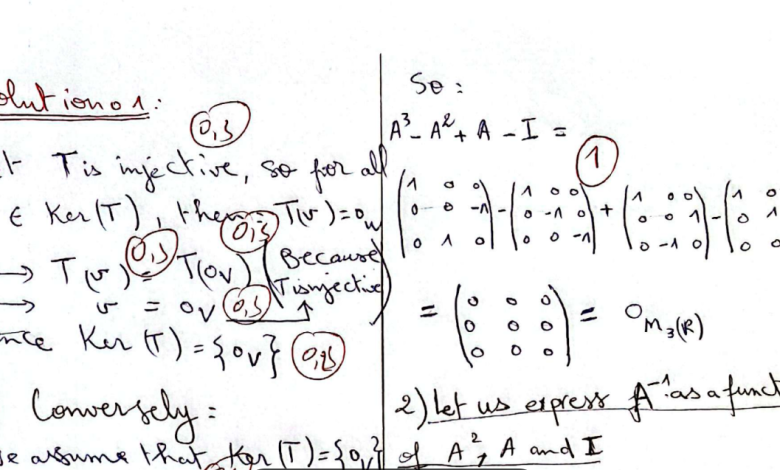 olution 01:
0,5
t T is injective, so for all
∈ Ker(T), then: T(v)=0w
0,5
→ T(v) = T(0v) (Because T is injective)
0,5
→ v = 0v
0,5
nce Ker(T)={0v}
0,25
Conversely:
e assume that Ker(T)={0v}
So:
A³-A²+A-I =
1
(1 0 0
0 0 -1
0 1 0) - (1 0 0
0 -1 0
0 0 -1) + (1 0 0
0 0 1
0 -1 0) - (1 0
0 1
0 0
= (0 0 0
0 0 0
0 0 0) = 0M₃(R)
2) Let us express A⁻¹ as a funct
of A², A and I